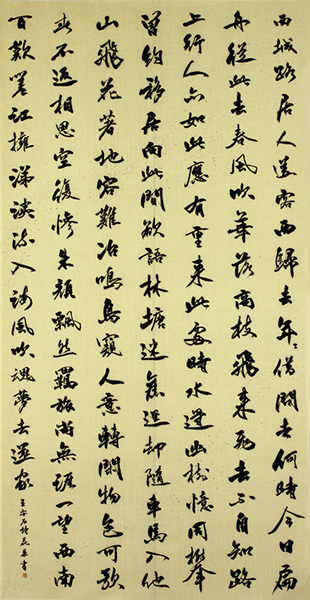 西城路居人送客西歸去年〻借問去何時今日扁
舟從此去春風吹華落高枝飛來飛去不自知路
上行人亦如此應有重來此處時水邊幽樹憶同攀
曾約移居向此間欲語林塘迷舊逕却隨車馬入他
山飛花著地容難冶鳴鳥窺人意轉閑物色可歌
春不返相思空復慘朱顏飄然羈旅尚無涯一望西南
百歎嗟江擁涕洟流入海風吹魂夢去還家
王安石詩 書